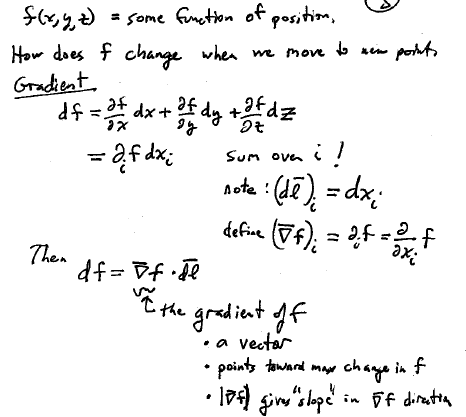 3
f(x,y,z) = some function of position.
How does f change when we move to new points
Gradient
df = ∂f/∂x dx + ∂f/∂y dy + ∂f/∂z dz
= ∂ᵢf dxᵢ sum over i !
note : (dl̄)ᵢ = dxᵢ
define (∇̄f)ᵢ = ∂ᵢf = ∂/∂xᵢ f
Then
df = ∇̄f · dl̄
↑ the gradient of f
• a vector
• points toward max change in f
• |∇̄f| gives "slope" in ∇̄f direction